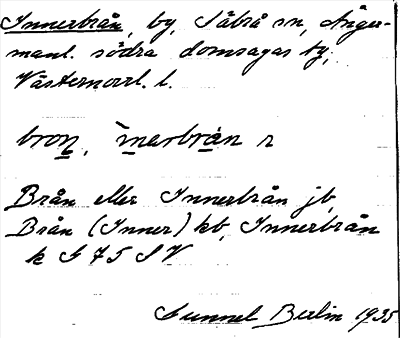 Innerbrån, by, Säbrå sn, Ånger-
manl. södra domsagas tg,
Västernorrl. l.
bron, inərbrån r
Brån eller Innerbrån jb,
Brån (Inner) kb, Innerbrån
k G 75 S V
Gunnel Berlin 1935